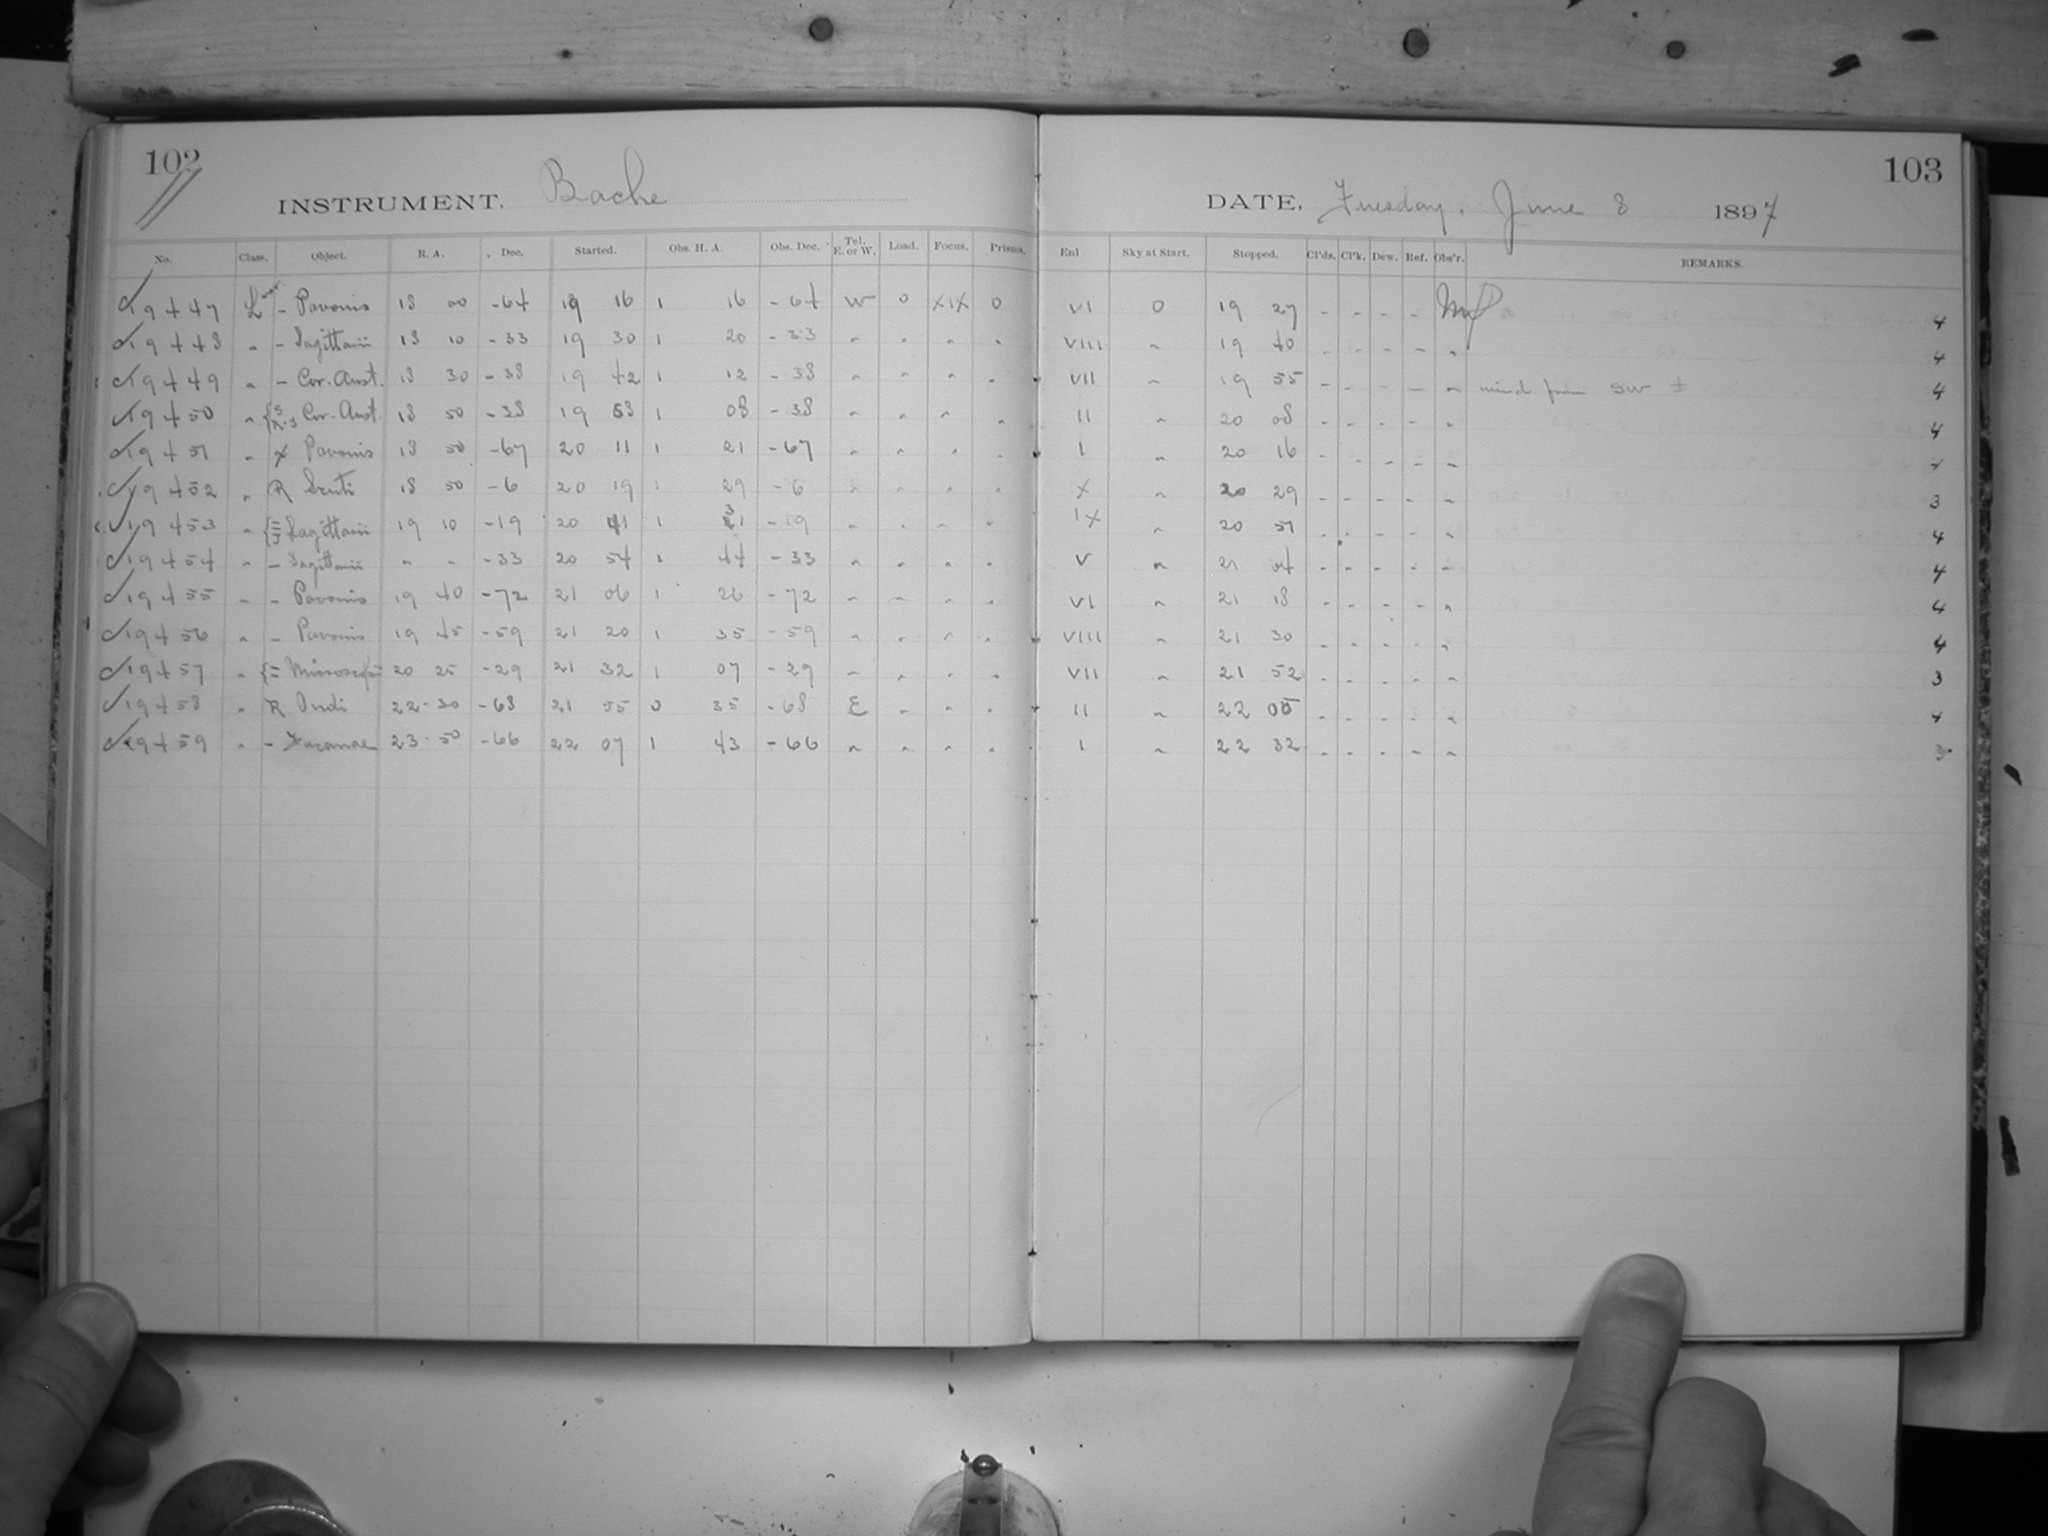 102
INSTRUMENT. Bache
No. Class. Object. R. A. Dec. Started. Obs. H. A. Obs. Dec. Tel. E. or W. Load. Focus. Prisms.
19447 L - Pavonis 18 00 -64 19 16 1 16 -64 W 0 XIX 0
19448 " - Sagittarii 18 10 -33 19 30 1 20 -33 " " " "
19449 " - Cor. Aust. 18 30 -38 19 42 1 12 -38 " " " "
19450 " Cor. Aust. 18 50 -38 19 58 1 08 -38 " " " "
19451 " Pavonis 18 50 -67 20 11 1 21 -67 " " " "
19452 " R Scuti 18 50 -6 20 19 1 29 -6 " " " "
19453 " Sagittarii 19 10 -19 20 41 1 31 -19 " " " "
19454 " - Sagittarii " " -33 20 54 1 44 -33 " " " "
19455 " - Pavonis 19 40 -72 21 06 1 26 -72 " " " "
19456 " - Pavonis 19 45 -59 21 20 1 35 -59 " " " "
19457 " 20 25 -29 21 32 1 07 -29 " " " "
19458 " R Indi 22 30 -68 21 55 0 35 -68 E " " "
19459 " - Tucanae 23 50 -66 22 07 1 43 -66 " " " "
103
DATE, Tuesday, June 8 1897
Enl Sky at Start. Stopped. Cl'ds. Cl'k. Dew. Ref. Obs'r. REMARKS.
VI 0 19 27 - - - - 4
VIII " 19 40 - - - - " 4
VII " 19 55 - - - - " wind from SW ± 4
II " 20 08 - - - - " 4
I " 20 16 - - - - " 4
X " 20 29 - - - - " 3
IX " 20 51 - - - - " 4
V " 21 04 - - - - " 4
VI " 21 18 - - - - " 4
VIII " 21 30 - - - - " 4
VII " 21 52 - - - - " 3
II " 22 05 - - - - " 4
I " 22 32 - - - - " 3